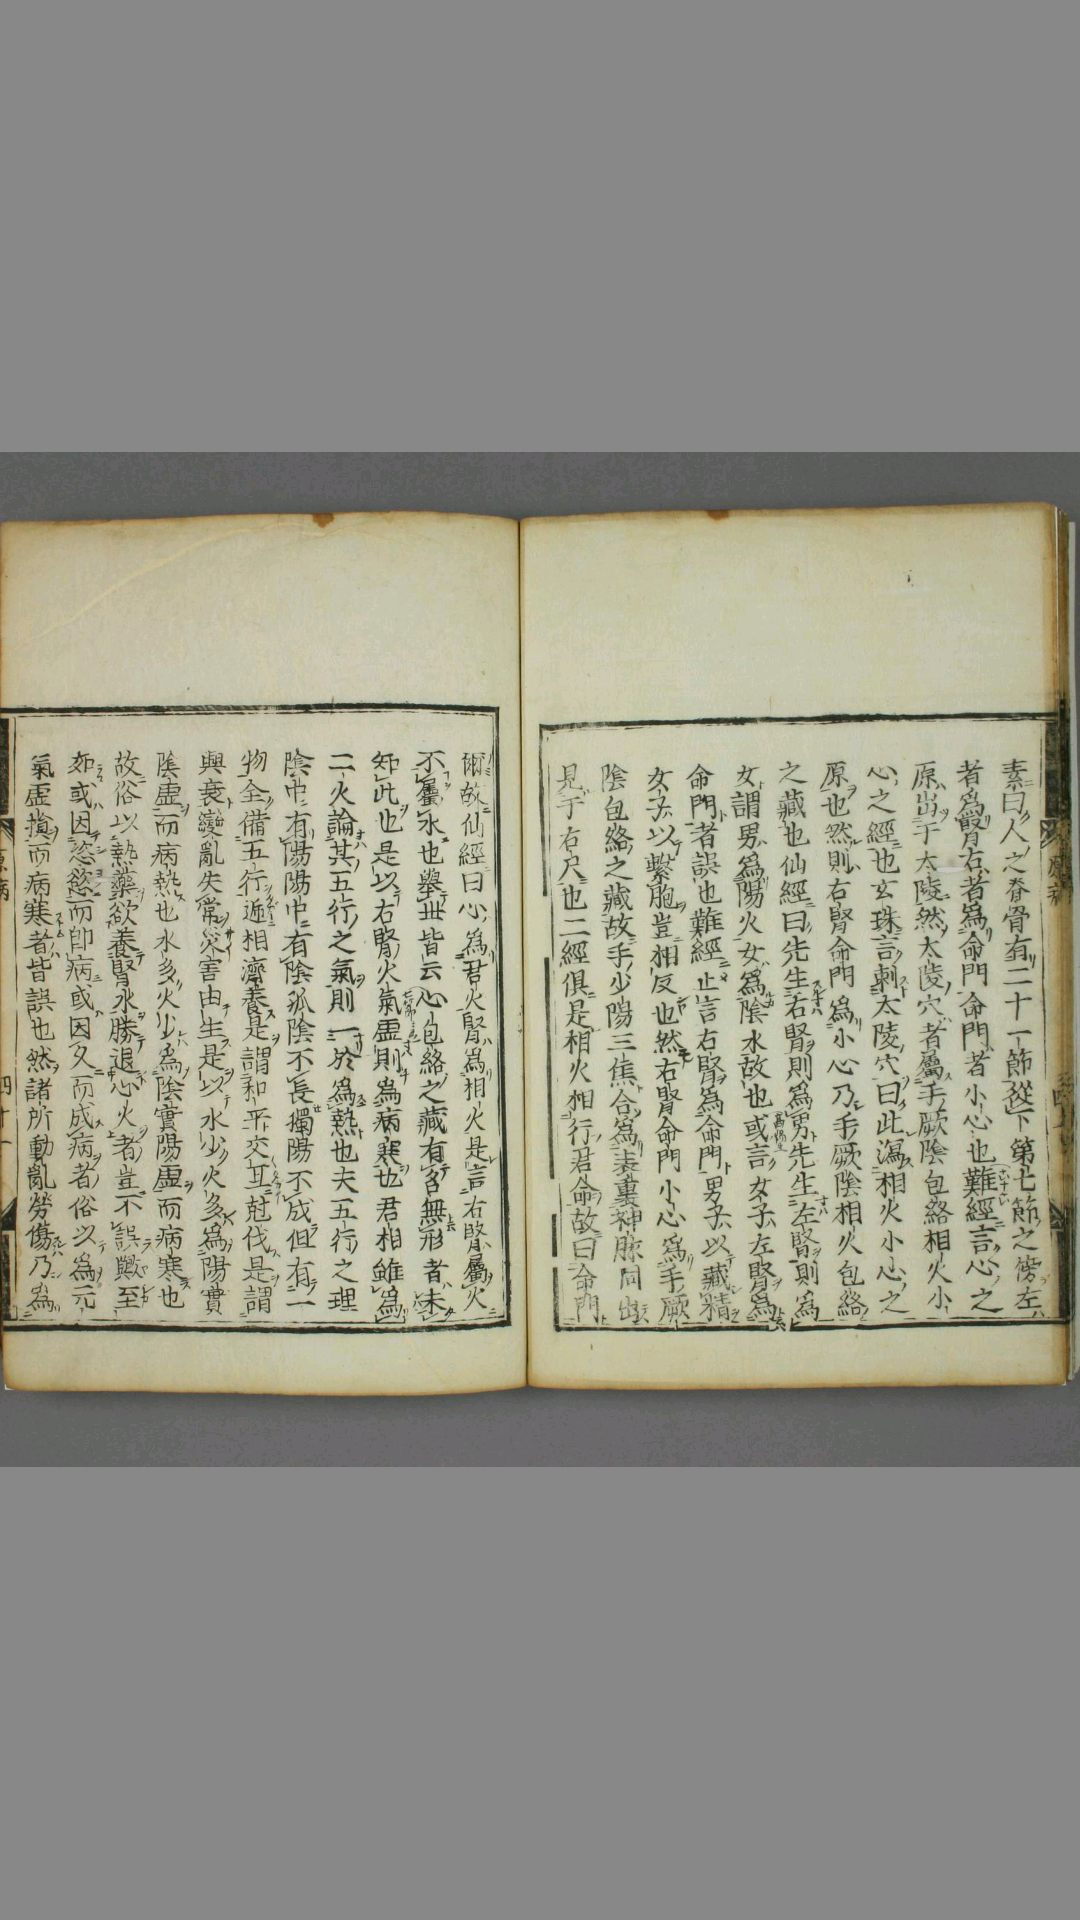 素曰人之脊骨有二十一節從下第七節之傍左
者爲腎右者爲命門命門者小心也難經言心之
原出于太陵然太陵穴者屬手厥陰包絡相火小
心之經也玄珠言刺太陵穴曰此瀉相火小心之
原也然則右腎命門爲小心乃手厥陰相火包絡
之藏也仙經曰先生右腎則爲男先生左腎則爲
女謂男爲陽火女爲陰水故也或言女子左腎爲
命門者誤也難經止言右腎爲命門男子以藏精
女子以繫胞豈相反也然右腎命門小心爲手厥
陰包絡之藏故手少陽三焦合爲表裏神脉同出
見于右尺也二經俱是相火相行君命故曰命門
爾故仙經曰心爲君火腎爲相火是言右腎屬火
不屬水也舉世皆云心包絡之藏有名無形者未
知此也是以右腎火氣虛則爲病寒也君相雖爲
二火論其五行之氣則一於爲熱也夫五行之理
陰中有陽陽中有陰孤陰不長獨陽不成但有一
物全備五行遞相濟養是謂和平交互尅伐是謂
興衰變亂失常災害由生是以水少火多爲陽實
陰虛而病熱也水多火少爲陰實陽虛而病寒也
故俗以熱藥欲養腎水勝退心火者豈不誤歟至
如或因恣慾而卽病或因久而成病者俗以爲元
氣虛損而病寒者皆誤也然諸所動亂勞傷乃爲
四十一